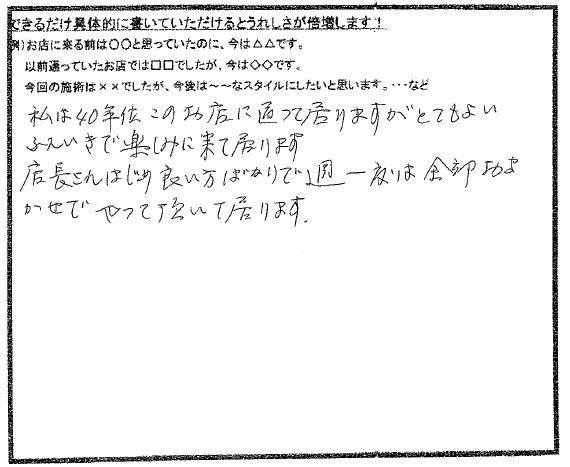 できるだけ具体的に書いていただけるとうれしさが倍増します！
例）お店に来る前は〇〇と思っていたのに、今は△△です。
以前通っていたお店では□□でしたが、今は◇◇です。
今回の施術は××でしたが、今後は～～なスタイルにしたいと思います。…など
私は40年位このお店に通って居りますがとてもよい
ふんいきで楽しみに来て居ります
店長さんはじめ良い方ばかりで週一度は全部おま
かせでやって頂いて居ります.